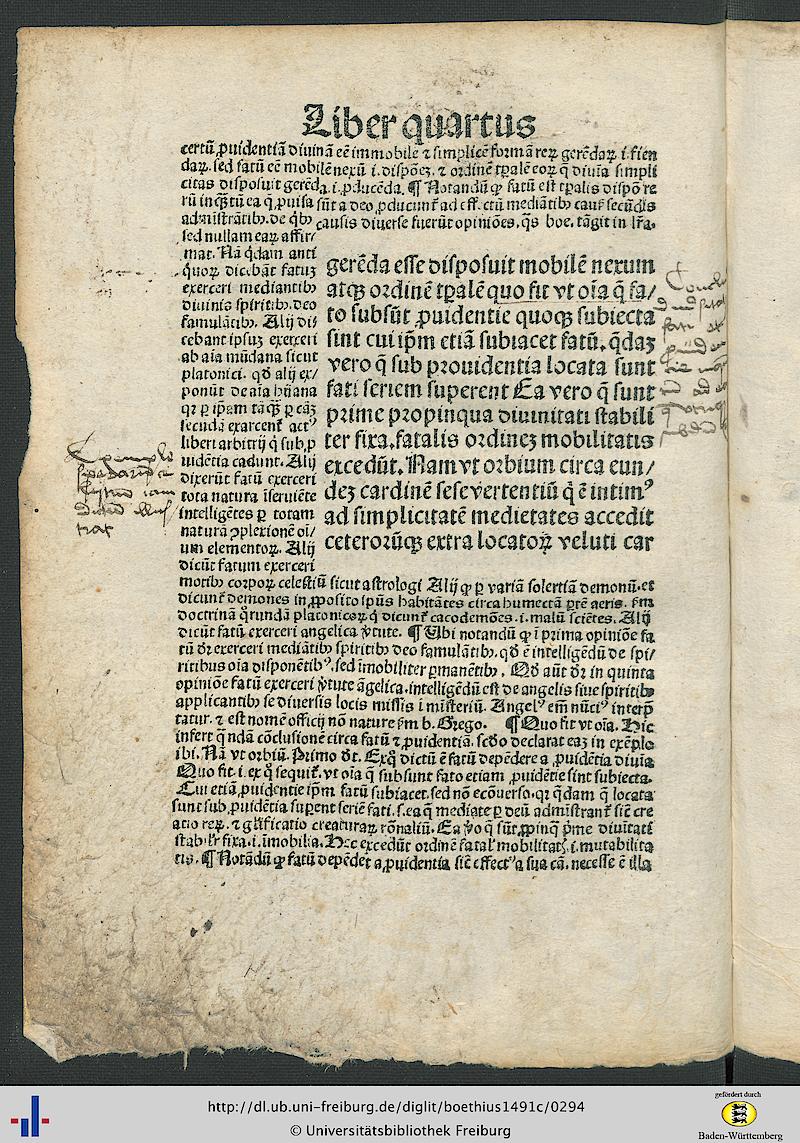 Liber quartus
certū ꝓuidentiā diuinā eē immobilē ⁊ simplicē formā reꝝ gerēdaꝝ .i. fien
daꝝ. sed fatū eē mobilē nexū .i. dispōeꝫ. ⁊ ordinē tꝑalē eoꝝ q̄ diuīa simpli
citas disposuit gerēda .i. ꝓducēda. ¶ Notandū ꝙ fatū est tꝑalis dispō re
rū inq̄tū ea q̄ ꝓuisa sūt a deo ꝓducunt̄ ad eff.ctū mediātibꝰ caus̄ secūdis
admīstrātibꝰ. de q̄bꝰ causis diuerse fuerūt opiniōes. q̄s boe. tāgit in lr̄a.
sed nullam eaꝝ affir/
mat. Nā q̇dam anti
quoꝝ dicebāt fatuꝫ
exerceri mediantibꝰ
diuinis spiritibꝰ deo
famulātibꝰ. Alij di/
cebant ipsuꝫ exerceri
ab aīa mūdana sicut
platonici. qd̄ alij ex/
ponūt de aīa hūana
qꝛ ꝑ ipsam tāqꝫ ꝑ cāꝫ
secūdā exercent̄ actꝰ
liberi arbitrij q̄ sub ꝓ
uidētia cadunt. Alij
dixerūt fatū exerceri
tota natura īseruiēte
intelligētes ꝑ totam
naturā ꝯplexionē oī/
um elementoꝝ. Alij
dicūt fatum exerceri
gerēda esse disposuit mobilē nexum
atqꝫ ordinē tꝑalē quo fit vt oīa q̄ fa/
to subsūt ꝓuidentie quoqꝫ subiecta
sint cui ip̄m etiā subiacet fatū. q̄daꝫ
vero q̄ sub prouidentia locata sunt
fati seriem superent Ea vero q̄ sunt
prime propinqua diuinitati stabili
ter fixa. fatalis ordineꝫ mobilitatis
excedūt. Nam vt orbium circa eun/
deꝫ cardinē sese vertentiū q̇ ē intimꝰ
ad simplicitatē medietates accedit
ceterorūqꝫ extra locatoꝝ veluti car
motibꝰ corpoꝝ celestiū sicut astrologi Alij ꝙ ꝑ variā solertiā demonū. et
dicunt̄ demones in ꝓposito ipūs habitātes circa humectā ꝑtē aeris. s̄m
doctrinā q̇rundā platonicoꝝ q̇ dicunt̄ cacodemōes .i. malū sciētes. Alij
dicūt fatū exerceri angelica v̄tute. ¶ Ubi notandū ꝙ ī prima opiniōe fa
tū dr̄ exerceri mediātibꝰ spiritibꝰ deo famulātibꝰ. qd̄ ē intelligēdū de spi/
ritibus oīa disponētibꝰ. sed īmobiliter ꝑmanētibꝰ. Qd̄ aūt dr̄ in quinta
opiniōe fatū exerceri v̄tute āgelica. intelligēdū est de angelis siue spiritibꝰ
applicantibꝰ se diuersis locis missis ī misteriū. Angelꝰ em̄ nūciꝰ interp̄
tatur. ⁊ est nomē officij nō nature s̄m b. Grego. ¶ Quo fit vt oīa. Hic
infert q̄ndā cōclusionē circa fatū ⁊ ꝓuidentiā. scd̄o declarat eaꝫ in exēplo
ibi. Nā vt orbiū. Primo dt̄. Exq̄ dictū ē fatū depēdere a ꝓuidētia diuīa
Quo fit .i. ex q̄ sequit̄. vt oīa q̄ subsunt fato etiam ꝓuidētie sint subiecta.
Cui etiā ꝓuidentie ip̄m fatū subiacet. sed nō ecōuerso. qꝛ q̄dam q̄ locata
sunt sub ꝓuidētia suꝑent seriē fati. s. ea q̄ mediate ꝑ deū admīstrant̄ sic̄ cre
atio reꝝ. ⁊ gl̄ificatio creaturaꝝ rōnaliū. Ea v̄o q̄ sūt ꝓpinq̄ p̄me diuītati
stabilr̄ fixa .i. īmobilia. Hec excedūt ordinē fatalꝭ mobilitatꝭ .i. mutabilita
tis. ¶ Notādū ꝙ fatū depēdet a ꝓuidentia sic̄ effectꝰ a sua cā. necesse ē illa
http://dl.ub.uni-freiburg.de/diglit/boethius1491c/0294
© Universitätsbibliothek Freiburg
gefördert durch
Baden-Württemberg